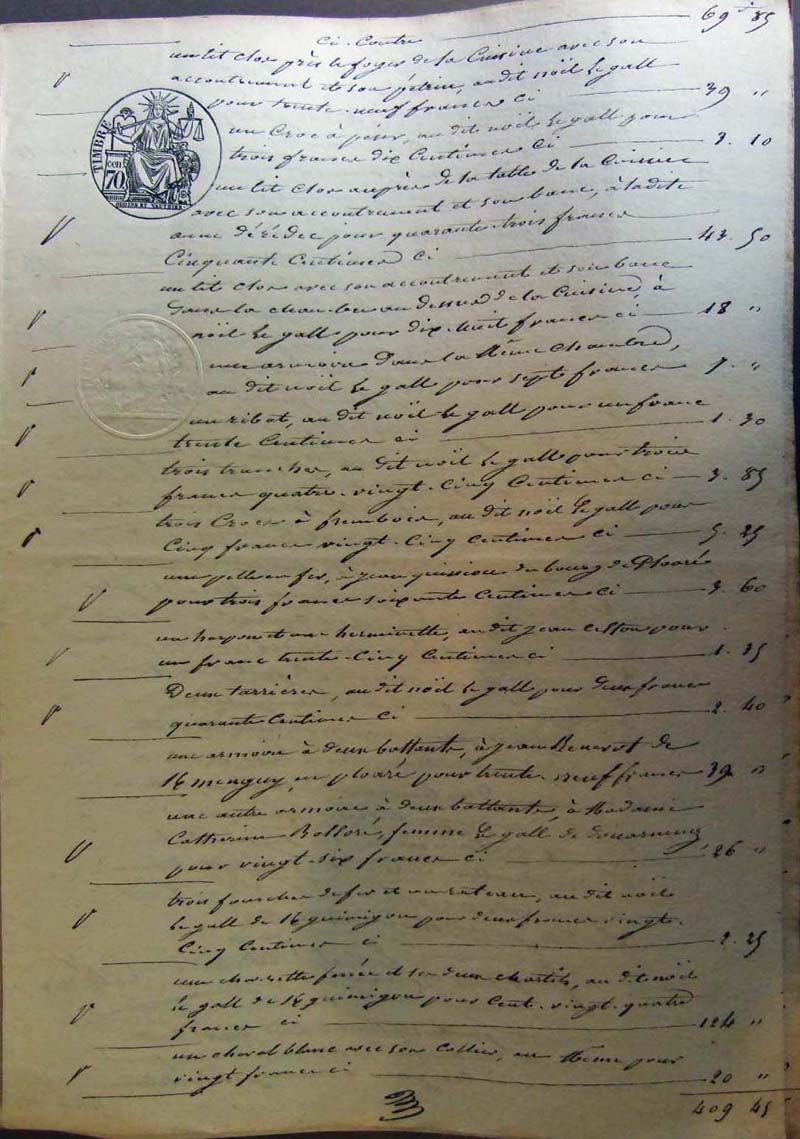 ci-Contre 69 f 85
un lit clos près le foyer de la Cuisine avec son
accoutrement et son pétrin, au dit noël Le gall
pour trente-neuf francs ci 39 "
un Croc à peser, au dit noël Le gall pour
trois francs dix Centimes ci 3. 10
un lit clos auprès de la table de la Cuisine
avec son accoutrement et son banc, à la dite
anne pour quarante-trois francs
Cinquante Centimes ci 43. 50
un lit clos avec son accoutrement et son banc
dans la chambre au dessus de la Cuisine, à
noël Le gall pour dix-huit francs ci 18 "
une armoire dans la même chambre,
au dit noël Le gall pour sept francs 7. "
un ribot, au dit noël Le gall pour un franc
trente Centimes ci 1. 30
trois tranches, au dit noël Le gall pour trois
francs quatre-vingt-Cinq Centimes ci 3. 85
trois Crocs à, au dit noël Le gall pour
Cinq francs vingt-Cinq Centimes ci 5. 25
une pelle en fer, à jean du bourg de Ploaré
pour trois francs soixante Centimes ci 3. 60
un harpon et une herminette, au dit jean pour
un franc trente-Cinq Centimes ci 1. 35
Deux tarrières, au dit noël Le gall pour deux francs
quarante Centimes ci 2. 40
une armoire à deux battants, à jean de
Kmenguy, en ploaré pour trente-neuf francs 39 "
une autre armoire à deux battants, à Madame
Catherine Bolloré, femme Le gall de douarnenez
pour vingt-six francs ci 26 "
trois fourches de fer et un rateau, au dit noël
Le gall de Kguimigou pour deux francs vingt-
Cinq Centimes ci 2. 25
une charrette ferrée et ses deux chartils, au dit noël
Le gall de Kguimigou pour Cent-vingt-quatre
francs ci 124 "
un cheval blanc avec son Collier, au Même pour
vingt francs ci 20 "
409 45
TIMBRE
cen.
70